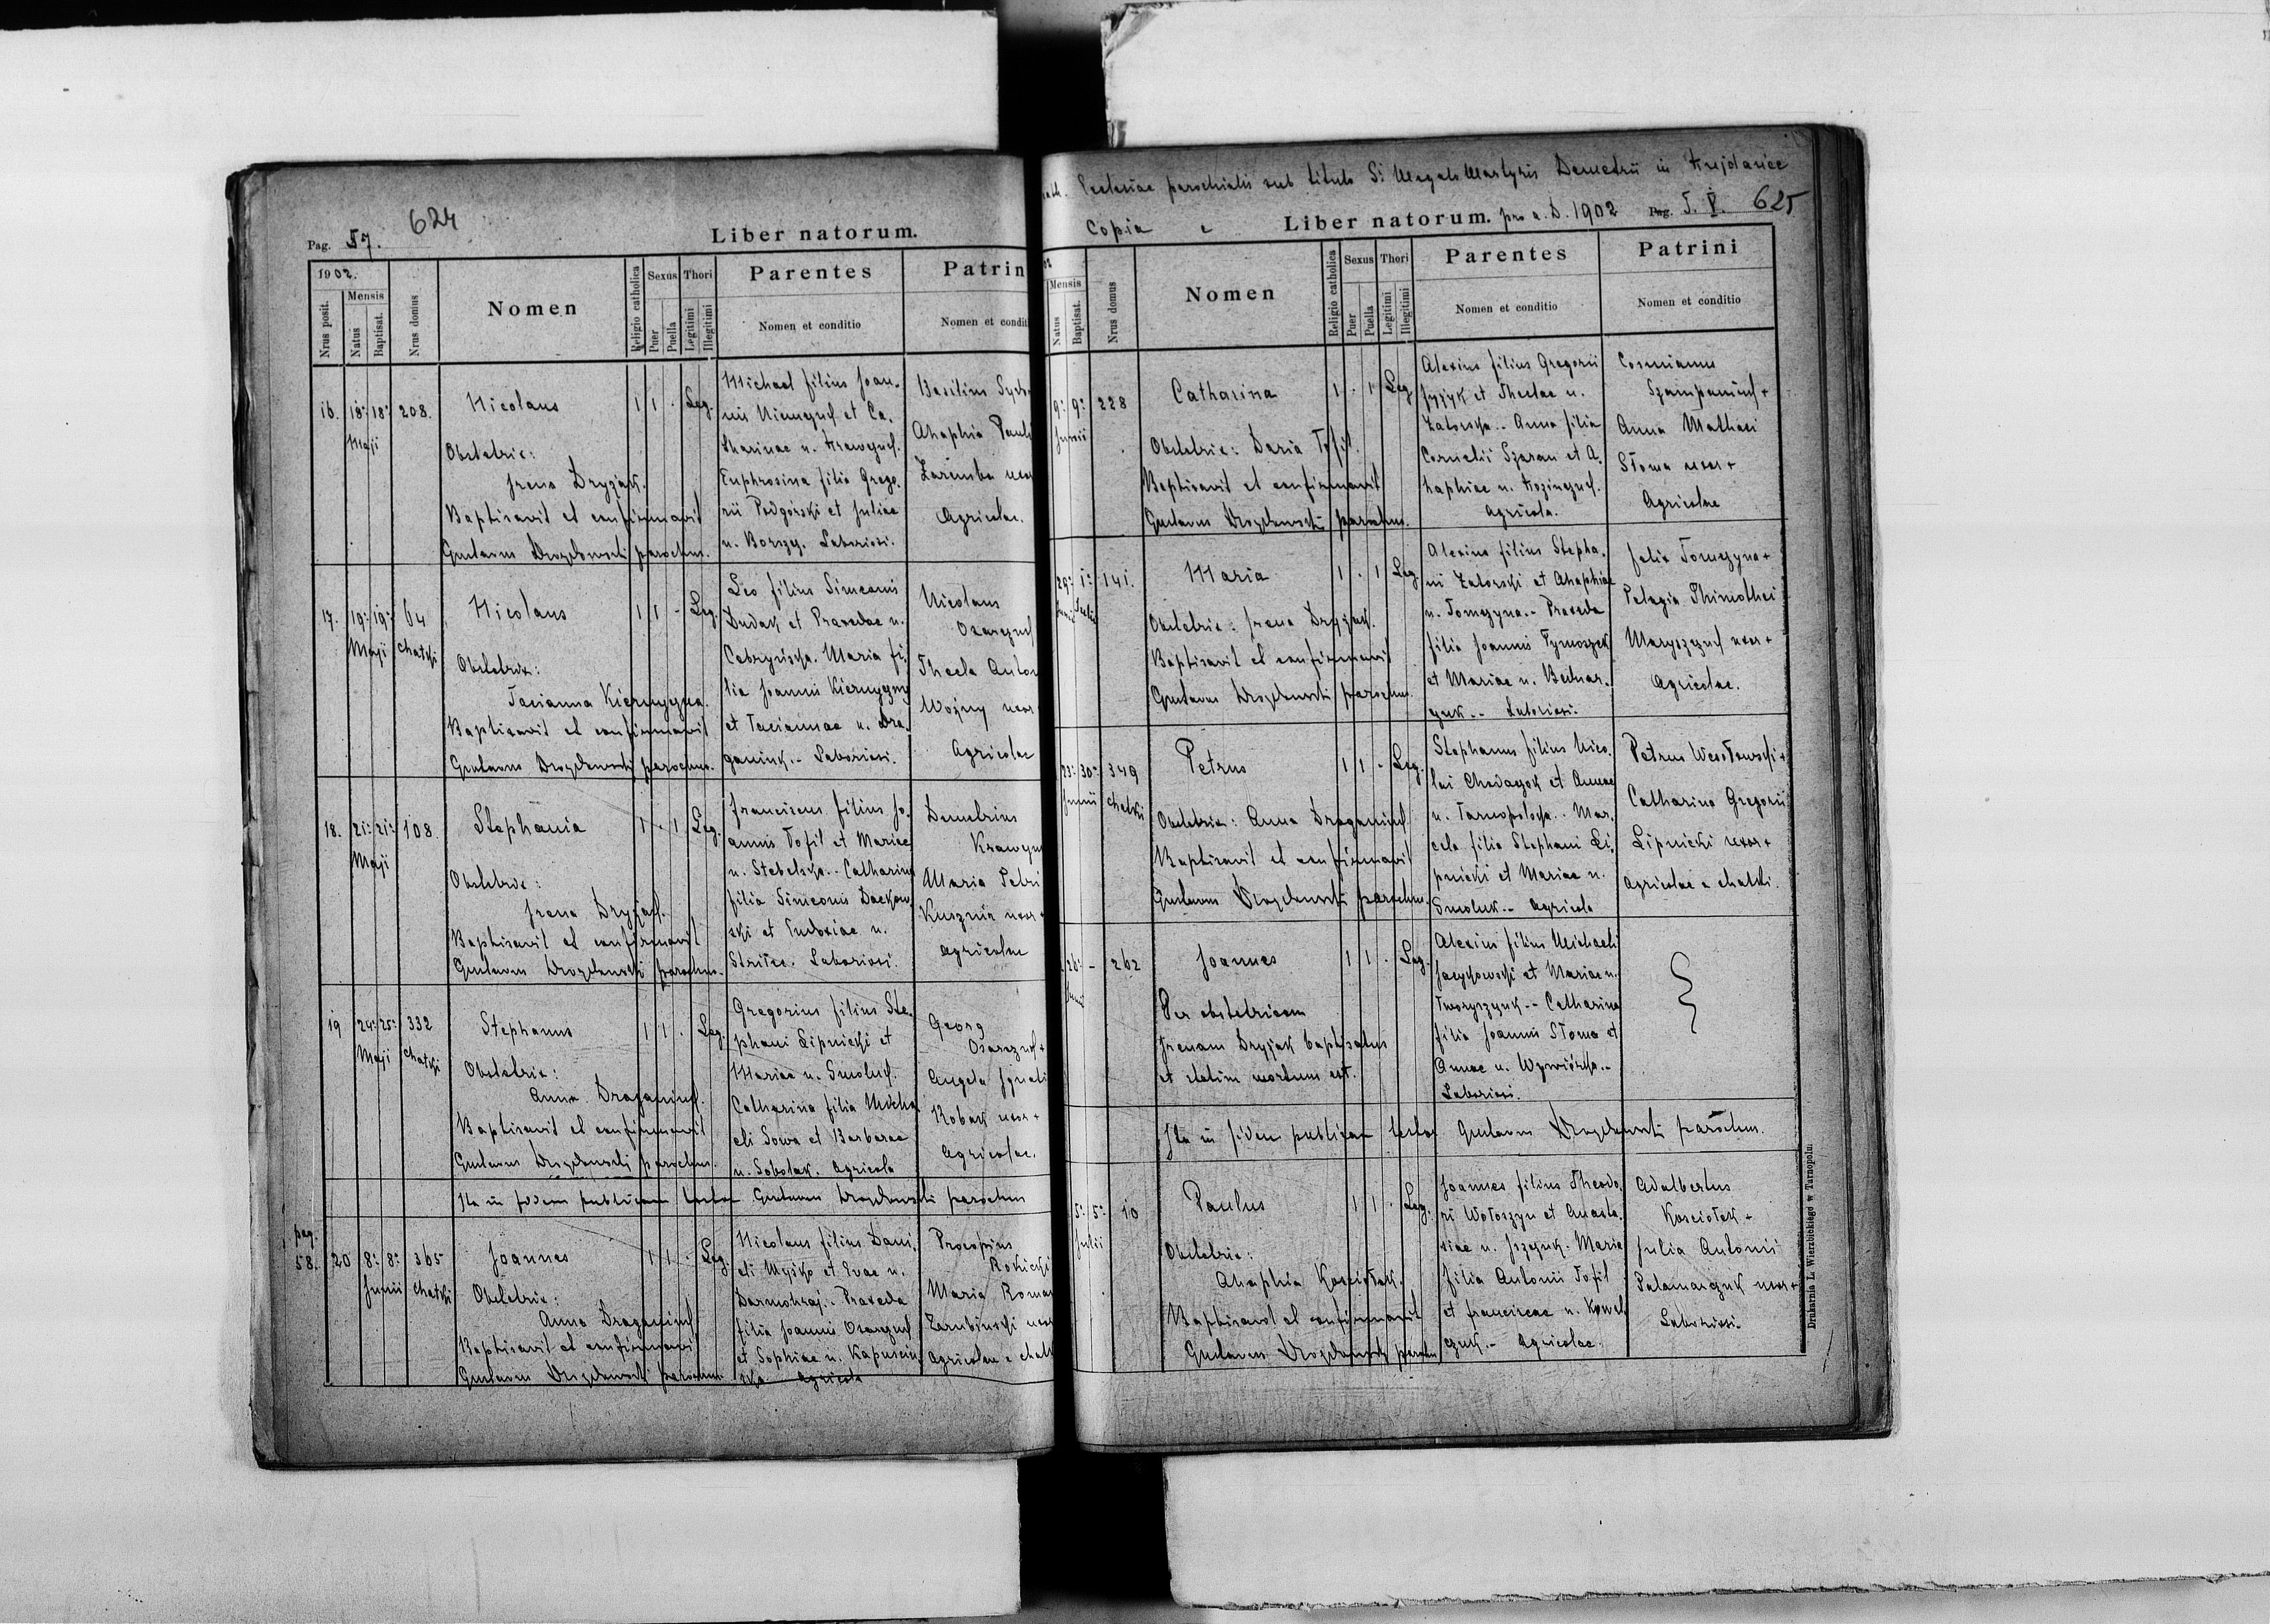 624
Pag. 57.
Liber natorum.
1902.
Nrus posit.
Mensis
Natus
Baptisat.
Nrus domus
Nomen
Religio catholica
Sexus
Puer
Puella
Thori
Legitimi
Illegitimi
Parentes
Nomen et conditio
Patrin
Nomen et condit
16. 18. 18. 208. Nicolaus 1 1 . Leg.
Maji
Obstetrix:
Irena Dryjak.
Baptisavit et confirmavit
Gustavus Drozdowski parochus.
Michael filius Joan-
nis Niemczuk et Ca-
tharinae n. Krawczuk.
Euphrosina filia Grego-
rii Podgórski et Juliae
n. Borszcz. Laboriosi.
Basilius
Ahaphia Pauli
Zaremba uxor
Agricolae.
17. 19. 19. 64 Nicolaus 1 1 - Leg.
Maji Chatki
Obstetrix:
Tacianna Kierniczna.
Baptisavit et confirmavit
Gustavus Drozdowski parochus.
Leo filius Simeonis
Dudak et Praxedae n.
Cebryńska. Maria fi-
lia Joannis Kierniczny
et Taciannae n. Dra-
ganiuk.- Laboriosi.
Nicolaus
Owarczuk
Thecla Anton
Wojny uxor
Agricolae
18. 21. 21. 108. Stephania 1 . 1 Leg.
Maji
Obstetrix:
Irena Dryjak.
Baptisavit et confirmavit
Gustavus Drozdowski parochus.
Franciscus filius Jo-
annis Tofil et Mariae
n. Stebelska.- Catharina
filia Simeonis Dackow-
ski et Eudoxiae n.
Laboriosi.
Demetrius
Krawczu
Maria Petri
Kusznir uxor +
Agricolae
19 24. 25. 332 Stephanus 1 1 . Leg.
Maji Chatki
Obstetrix:
Anna Draganiuk.
Baptisavit et confirmavit
Gustavus Drozdowski parochus.
Gregorius filius Ste-
phani Lipnicki et
Mariae n. Smoluk.
Catharina filia Micha-
eli Sowa et Barbarae
n. Sobolak. Agricola
Georg
Owarczuk +
Angela Ignati
Kobak uxor +
Agricolae.
Ita in fidem publicam testor Gustavus Drozdowski parochus
pag.
58. 20 8. 8. 365 Joannes 1 1 . Leg.
Junii Chatki
Obstetrix:
Anna Draganiuk
Baptisavit et confirmavit
Gustavus Drozdowski parochus
Nicolaus filius Dani-
eli Myśko et Evae n.
Darmohraj.- Praxeda
filia Joannis Owarczuk
et Sophiae n. Kapuściń-
ska Agricola
Procopius
Rokicki
Maria Roma
Zarubinski uxor
Agricolae e chatk
Ecclesiae parochialis sub titulo S. MegaloMartyris Demetrii in
Copia e Liber natorum. pro a. D. 1902 Pag. T. V. 625
Mensis
Natus
Baptisat.
Nrus domus
Nomen
Religio catholica
Sexus
Puer
Puella
Thori
Legitimi
Illegitimi
Parentes
Nomen et conditio
Patrini
Nomen et conditio
9. 9. 228 Catharina 1 . 1 Leg
Junii
Obstetrix: Daria Tofil.
Baptisavit et confirmavit
Gustavus Drozdowski parochus.
Alexius filius Gregorii
et Theclae n.
Zatorska.- Anna filia
Cornelii Szaran et A-
haphiae n.
Agricola.
Cosmianus
+
Anna Mathaei
Słoma uxor +
Agricolae
29. 1. 141. Maria 1 . 1 Leg
Junii Julii
Obstetrix: Irena Dryjak.
Baptisavit et confirmavit
Gustavus Drozdowski parochus.
Alexius filius Stepha-
ni Zatorski et Ahaphiae
n. Tomczyna.- Praxeda
filia Joannis Tymoszek
et Mariae n. Bednar-
czuk.- Laboriosi.
Felix Tomczyna +
Pelagia Thimothei
Maryszczuk uxor +
Agricolae.
23. 30. 349 Petrus 1 1 . Leg.
Junii Chatki
Obstetrix: Anna Draganiuk
Baptisavit et confirmavit
Gustavus Drozdowski parochus.
Stephanus filius Nico-
lai Chodaczok et Annae
n. Tarnopolska.- Mar-
cela filia Stephani Li-
pnicki et Mariae n.
Smoluk.- Agricola
Petrus Wesołowski +
Catharina Gregorii
Lipnicki uxor +
Agricolae e chatki.
28. - 262 Joannes 1 1 . Leg.
Junii
Per obstetricem
Irenam Dryjak baptisatus
et statim mortuus est.
Alexius filius Michaeli
Jaczkowski et Mariae n.
Tworyszczuk.- Catharina
filia Joannis Słoma et
Annae n.
Laboriosi.
Ita in fidem publicam testor Gustavus Drozdowski parochus.
5. 5. 10 Paulus 1 1 . Leg.
Julii
Obstetrix:
Ahaphia Kosciołek.
Baptisavit et confirmavit
Gustavus Drozdowski parochus
Joannes filius Theodo-
ri Wołoszyn et Anasta-
siae n. Jszczuk.- Maria
filia Antonii Tofil
et Franciscae n. Kowal-
czuk.- Agricolae.
Adalbertus
Kosciołek +
Julia Antonii
Palamarczuk uxor +
Laboriosi-
Drukarnia L. Wierzbickiego w Tarnopolu.